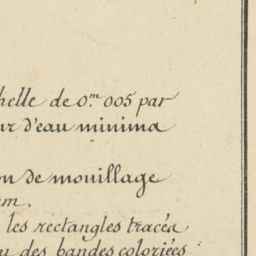 helle de 0.m 005 par
ur d'eau minima
on de mouillage
m.
les rectangles tracés
u des bandes coloriées